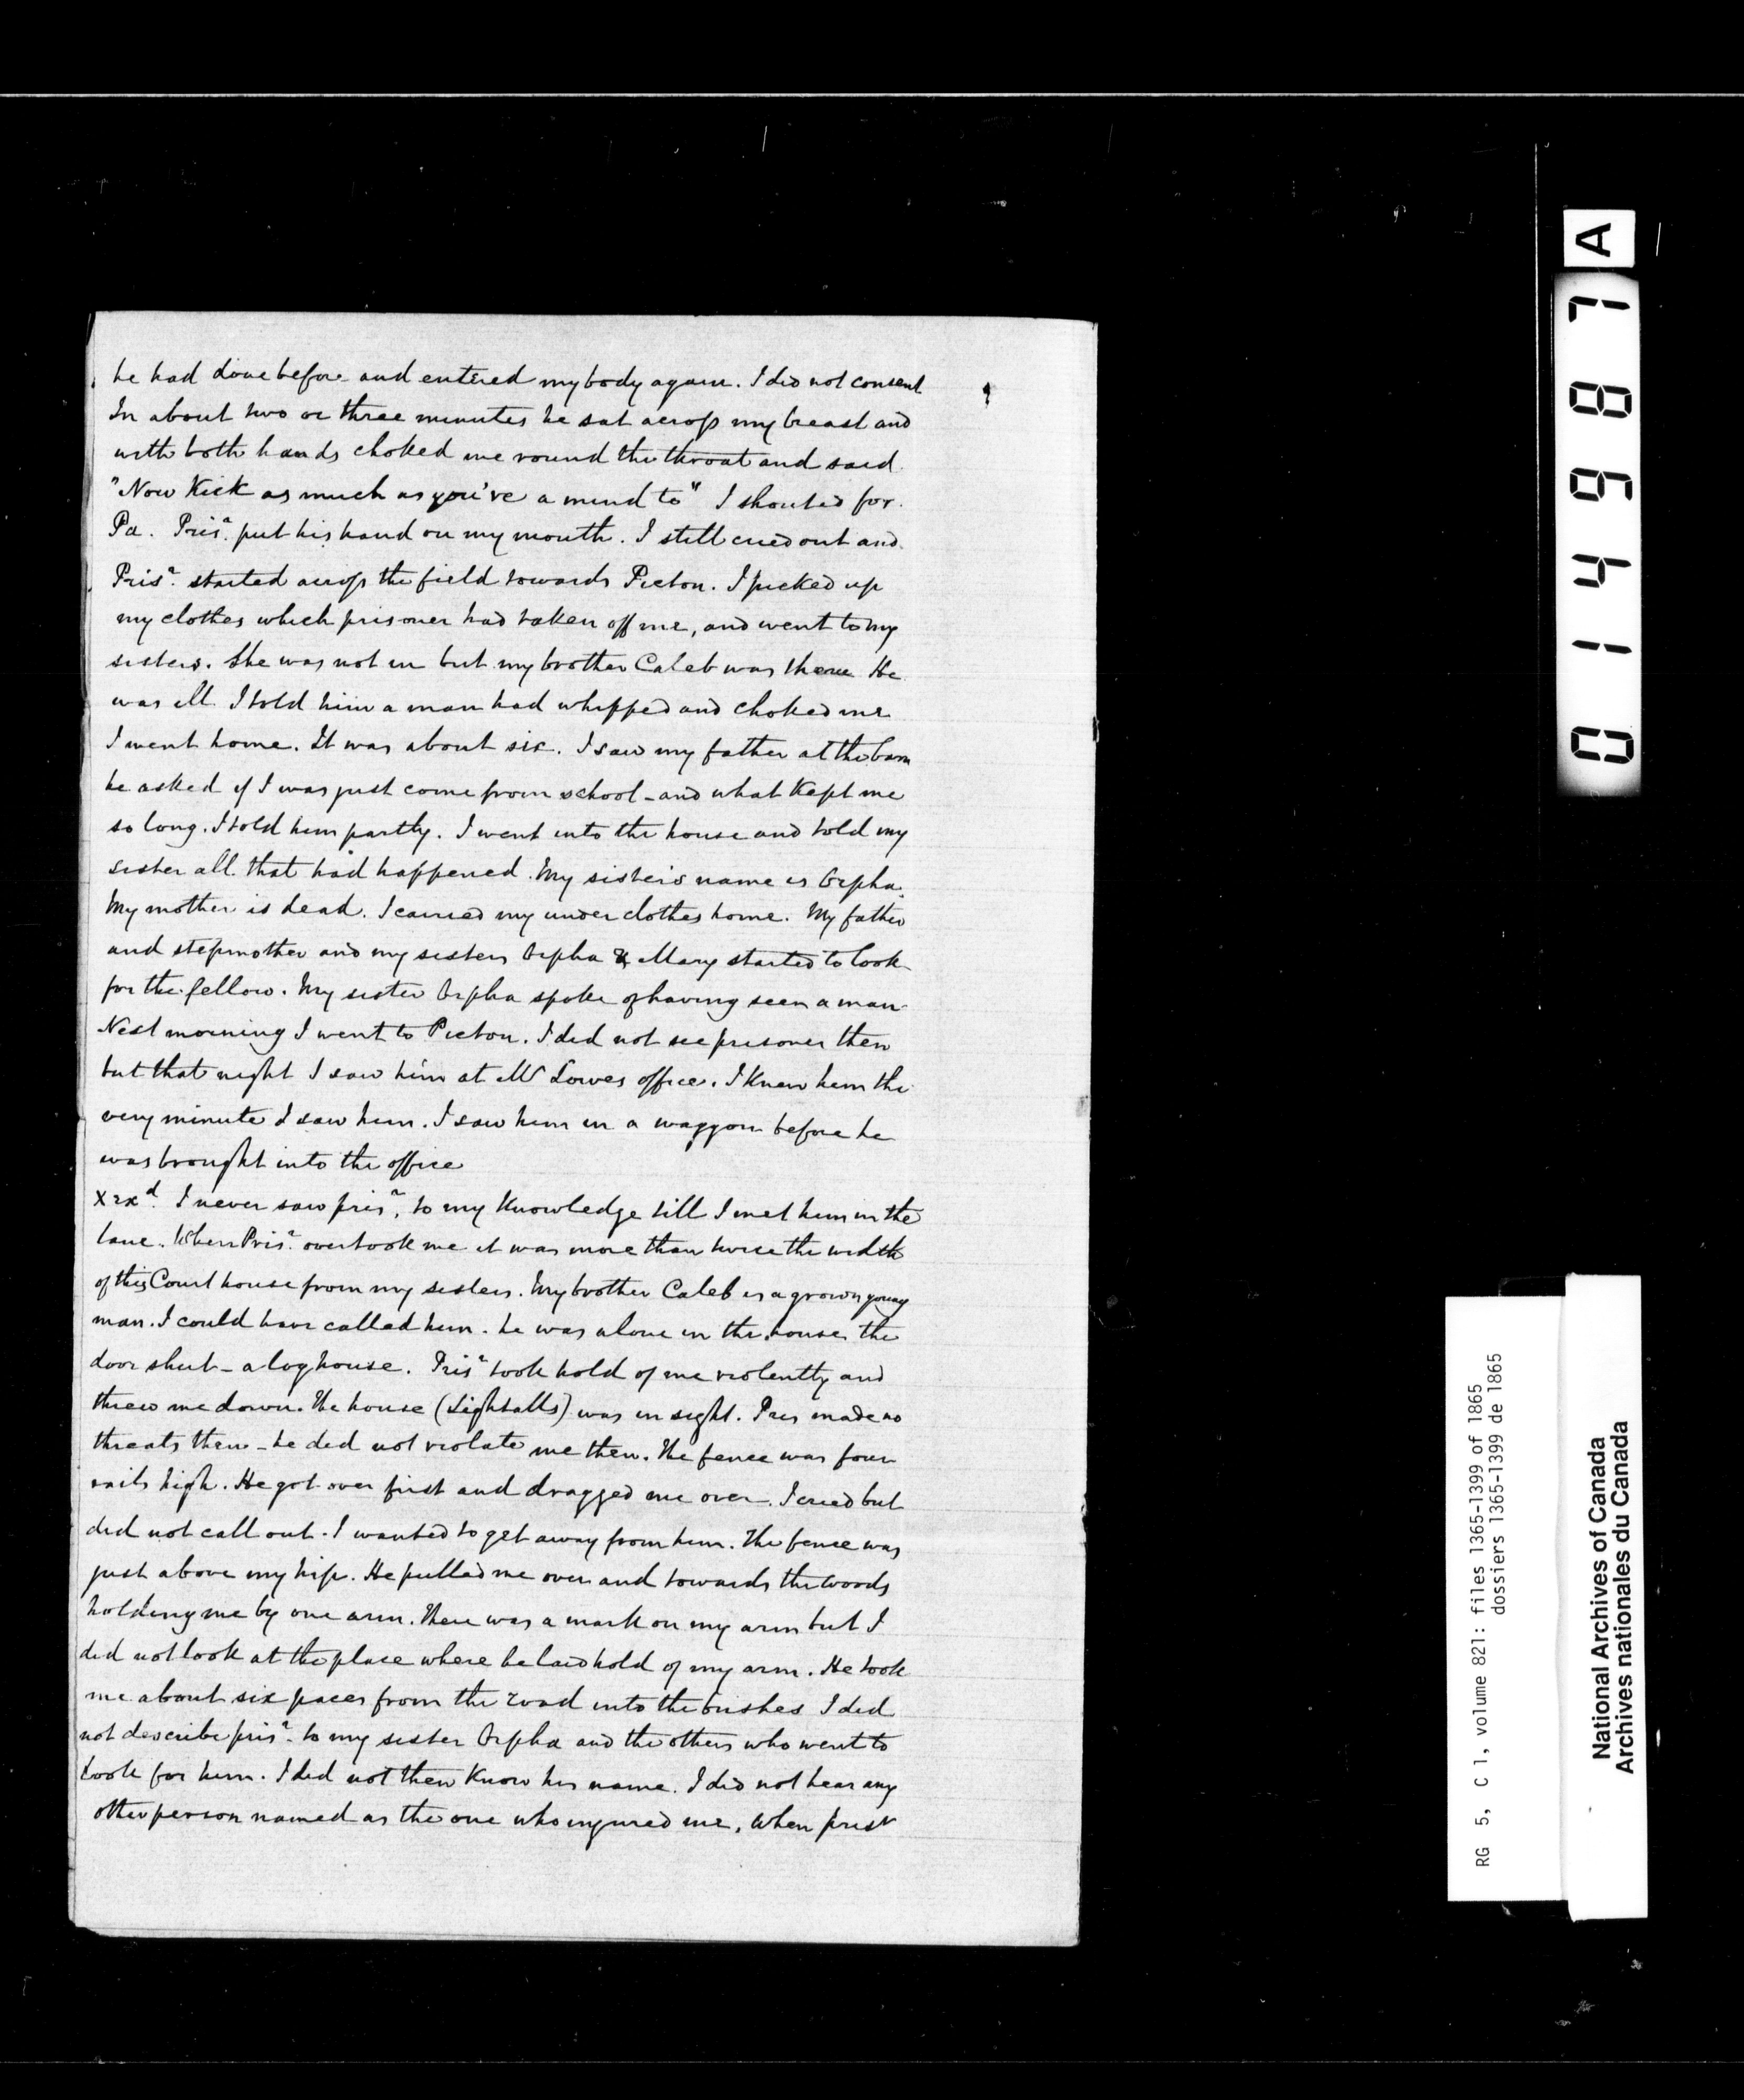 he had done before and entered my body again. I did not consent
In about two or three minutes he sat across my breast and
with both hands choked me round the throat and said
"Now Kick as much as you've a mind to" I shouted for
Pa. Pris^r. put his hand on my mouth. I still cried out and
Pris^r. started across the field towards Picton. I picked up
my clothes which prisoner had taken off me, and went to my
sisters. She was not in but my brother Caleb was there He
was ill I told him a man had whipped and choked me
I went home. It was about six. I saw my father at the barn
he asked if I was just come from school - and what Kept me
so long. I told him partly. I went into the house and told my
sister all that had happened. My sister's name is Orpha.
My mother is dead. I carried my under clothes home. My father
and stepmother and my sisters Orpha & Mary started to look
for the fellow. My sister Orpha spoke of having seen a man
Next morning I went to Picton. I did not see prisoner then
but that night I saw him at Mr Lowes office. I Knew him the
very minute I saw him. I saw him in a waggon before he
was brought into the office
Xx^d. I never saw pris^r, to my Knowledge till I met him in the
lane. When Pris^r. overtook me it was more than twice the width
of this Court house from my sisters. My brother Caleb is a grown young
man. I could have called him. he was alone in the house the
door shut - a log house. Pris^r took hold of me violently and
threw me down. The house (Lightalls) was in sight. Pris made no
threats then - he did not violate me then. The fence was four
rails high. He got over first and dragged me over. I cried but
did not call out. I wanted to get away from him. The fence was
just above my hip. He pulled me over and towards the woods
holding me by one arm. There was a mark on my arm but I
did not look at the place where he laid hold of my arm. He took
me about six paces from the road into the bushes I did
not describe pris^r. to my sister Orpha and the others who went to
look for him. I did not then Know his name. I did not hear any
other person named as the one who injured me, When pris^r
014987 A
RG 5, C 1, volume 821: files 1365-1399 of 1865
dossiers 1365-1399 de 1865
National Archives of Canada
Archives nationales du Canada